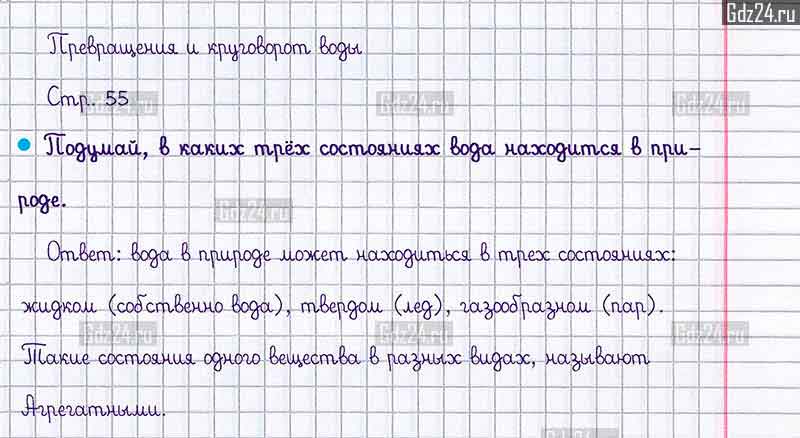 Gdz24.ru
Превращения и круговорот воды
Стр. 55
Gdz24.ru Gdz24.ru Gdz24.ru
Подумай, в каких трёх состояниях вода находится в при-
роде.
Gdz24.ru
Ответ: вода в природе может находиться в трех состояниях:
жидком (собственно вода), твердом (лед), газообразном (пар).
Gdz24.ru Gdz24.ru Gdz24.ru
Такие состояния одного вещества в разных видах, называют
Агрегатными.
Gdz24.ru